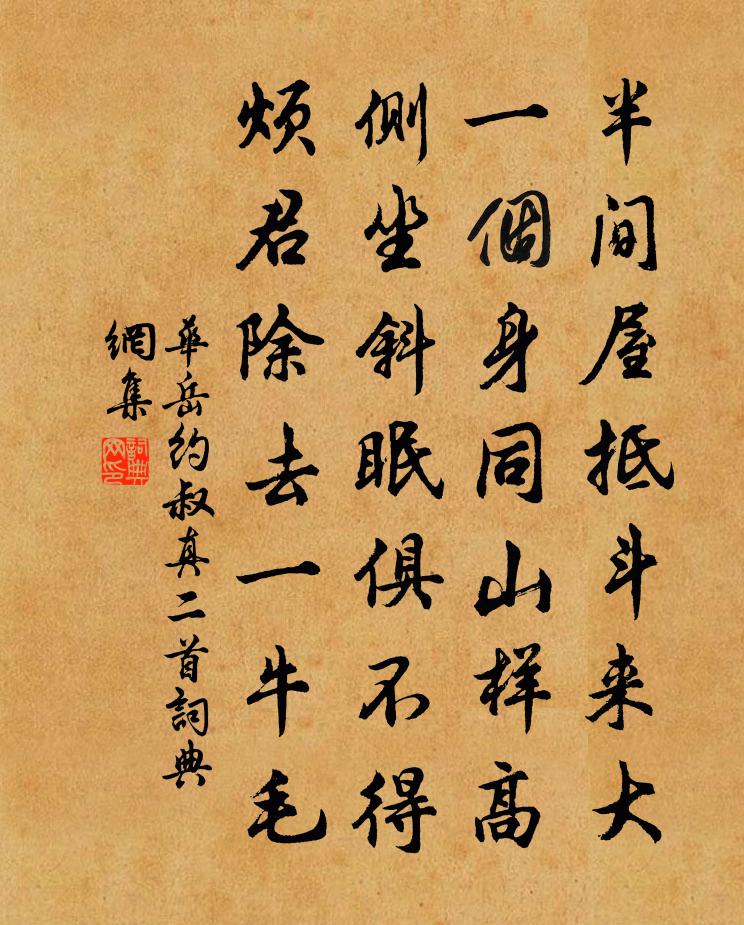 半间屋抵斗来大
一個身同山样高
側坐斜眠俱不得
煩君除去一牛毛
華岳約叔真二首詞典
網集
詞典
网印